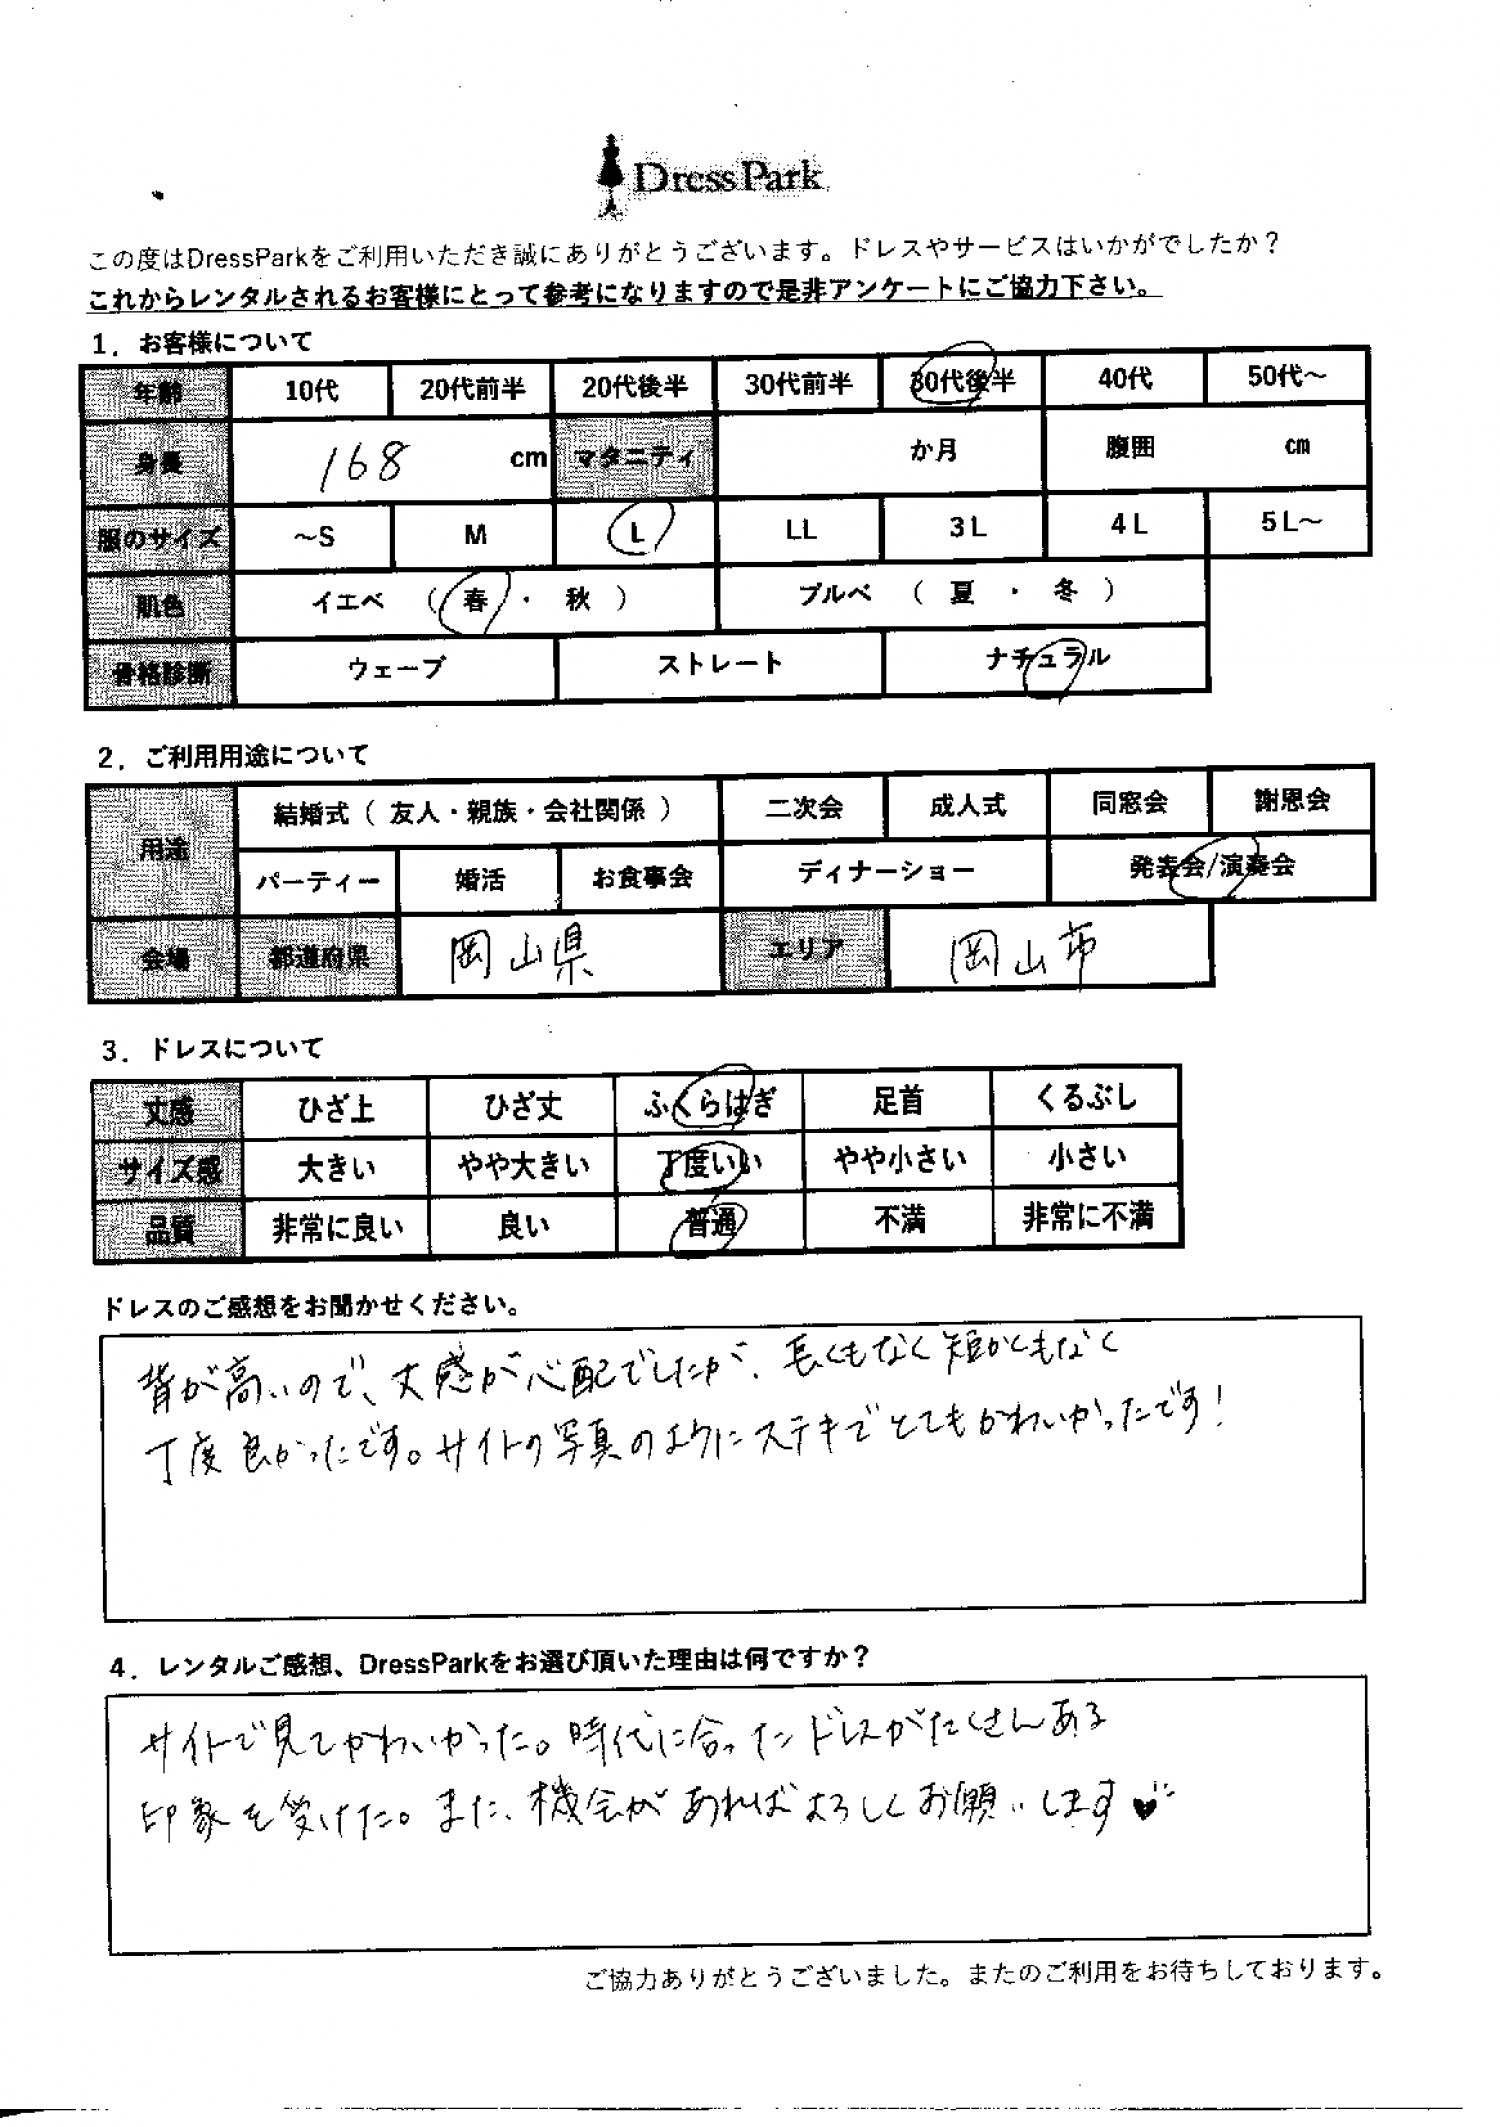 DressPark
この度はDressParkをご利用いただき誠にありがとうございます。ドレスやサービスはいかがでしたか？
これからレンタルされるお客様にとって参考になりますので是非アンケートにご協力下さい。
1．お客様について
年齢 10代 20代前半 20代後半 30代前半 30代後半 40代 50代～
身長 168 cm マタニティ か月 腹囲 cm
服のサイズ ～S M L LL 3L 4L 5L～
肌色 イエベ （ 春 ・ 秋 ） ブルベ （ 夏 ・ 冬 ）
骨格診断 ウェーブ ストレート ナチュラル
2．ご利用用途について
用途 結婚式（ 友人・親族・会社関係 ） 二次会 成人式 同窓会 謝恩会
パーティー 婚活 お食事会 ディナーショー 発表会/演奏会
会場 都道府県 岡山県 エリア 岡山市
3．ドレスについて
丈感 ひざ上 ひざ丈 ふくらはぎ 足首 くるぶし
サイズ感 大きい やや大きい 丁度いい やや小さい 小さい
品質 非常に良い 良い 普通 不満 非常に不満
ドレスのご感想をお聞かせください。
背が高いので、丈感が心配でしたが、長くもなく短かくもなく
丁度良かったです。サイトの写真のようにステキでとてもかわいかったです！
4．レンタルご感想、DressParkをお選び頂いた理由は何ですか？
サイトで見てかわいかった。時代に合ったドレスがたくさんある
印象を受けた。また、機会があればよろしくお願いします♥
ご協力ありがとうございました。またのご利用をお待ちしております。